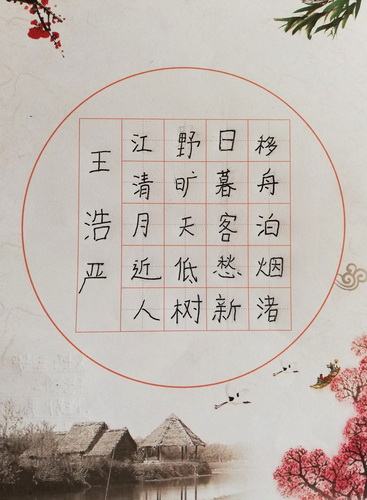 移舟泊烟渚
日暮客愁新
野旷天低树
江清月近人
王浩严